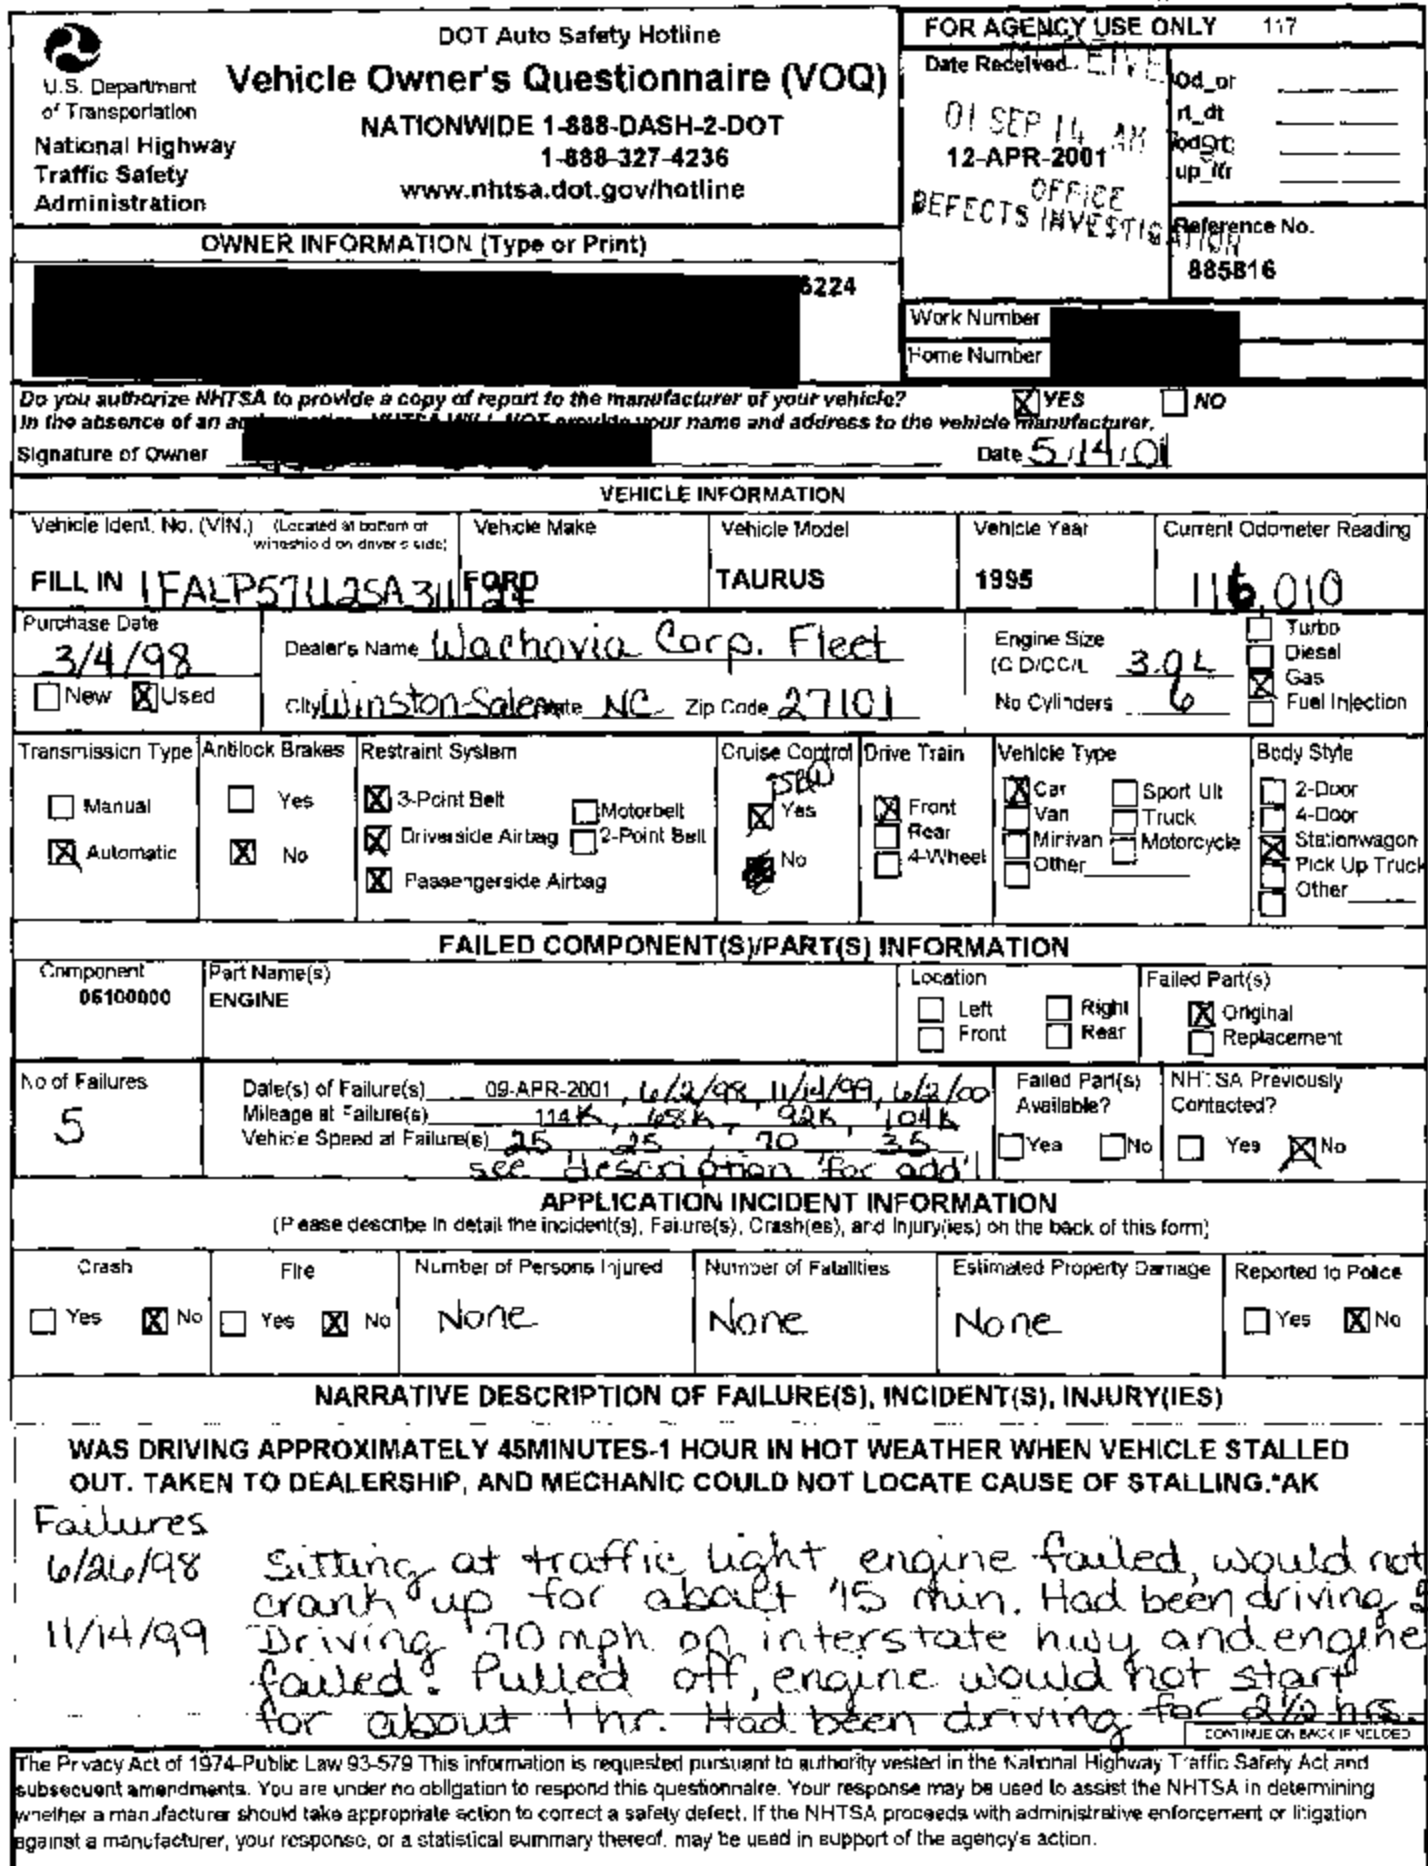 DOT Auto Safety Hotline
Vehicle Owner's Questionnaire (VOQ)
NATIONWIDE 1-888-DASH-2-DOT
1-888-327-4236
www.nhtsa.dot.gov/hotline
U.S. Department
of Transportation
National Highway
Traffic Safety
Administration
FOR AGENCY USE ONLY 117
Date Received
01 SEP 14 AM
12-APR-2001
OFFICE
DEFECTS INVESTIGATION
Od_or
rt_dt
up_ltr
Reference No.
885816
OWNER INFORMATION (Type or Print)
6224
Work Number
Home Number
Do you authorize NHTSA to provide a copy of report to the manufacturer of your vehicle? X YES NO
In the absence of an NHTSA WILL NOT provide your name and address to the vehicle manufacturer.
Signature of Owner Date 5/14/01
VEHICLE INFORMATION
Vehicle Ident. No. (VIN.) (Located at bottom of
windshield on driver's side)
FILL IN
Vehicle Make
FORD
Vehicle Model
TAURUS
Vehicle Year
1995
Current Odometer Reading
116,010
Purchase Date
3/4/98
New X Used
Dealer's Name Wachovia Corp. Fleet
City Winston-Salem State NC Zip Code 27101
Engine Size
(CID/CC/L 3.0L
No Cylinders 6
Turbo
Diesel
X Gas
Fuel Injection
Transmission Type
Manual
X Automatic
Antilock Brakes
Yes
X No
Restraint System
X 3-Point Belt
X Driverside Airbag
X Passengerside Airbag
Motorbelt
2-Point Belt
Cruise Control
X Yes
No
Drive Train
X Front
Rear
4-Wheel
Vehicle Type
X Car
Van
Minivan
Other
Sport Ult
Truck
Motorcycle
Body Style
2-Door
4-Door
X Stationwagon
Pick Up Truck
Other
FAILED COMPONENT(S)/PART(S) INFORMATION
Component
06100000
Part Name(s)
ENGINE
Location
Left Right
Front Rear
Failed Part(s)
X Original
Replacement
No of Failures
5
Date(s) of Failure(s) 09-APR-2001, 6/2/98, 11/14/99, 6/2/00
Mileage at Failure(s) 114K, 68K, 92K, 104K
Vehicle Speed at Failure(s) 25 25 70 35
see description for add'l
Failed Part(s)
Available?
Yes No
NHTSA Previously
Contacted?
Yes X No
APPLICATION INCIDENT INFORMATION
(Please describe in detail the incident(s), Failure(s), Crash(es), and Injury(ies) on the back of this form)
Crash
Yes X No
Fire
Yes X No
Number of Persons Injured
None
Number of Fatalities
None
Estimated Property Damage
None
Reported to Police
Yes X No
NARRATIVE DESCRIPTION OF FAILURE(S), INCIDENT(S), INJURY(IES)
WAS DRIVING APPROXIMATELY 45MINUTES-1 HOUR IN HOT WEATHER WHEN VEHICLE STALLED
OUT. TAKEN TO DEALERSHIP, AND MECHANIC COULD NOT LOCATE CAUSE OF STALLING.*AK
Failures
6/26/98 Sitting at traffic light engine failed, would not
crank up for about 15 min. Had been driving
11/14/99 Driving 70 mph on interstate hwy and engine
failed. Pulled off, engine would not start
for about 1 hr. Had been driving for 2½ hrs.
CONTINUE ON BACK IF NEEDED
The Privacy Act of 1974-Public Law 93-579 This information is requested pursuant to authority vested in the National Highway Traffic Safety Act and
subsequent amendments. You are under no obligation to respond this questionnaire. Your response may be used to assist the NHTSA in determining
whether a manufacturer should take appropriate action to correct a safety defect. If the NHTSA proceeds with administrative enforcement or litigation
against a manufacturer, your response, or a statistical summary thereof, may be used in support of the agency's action.